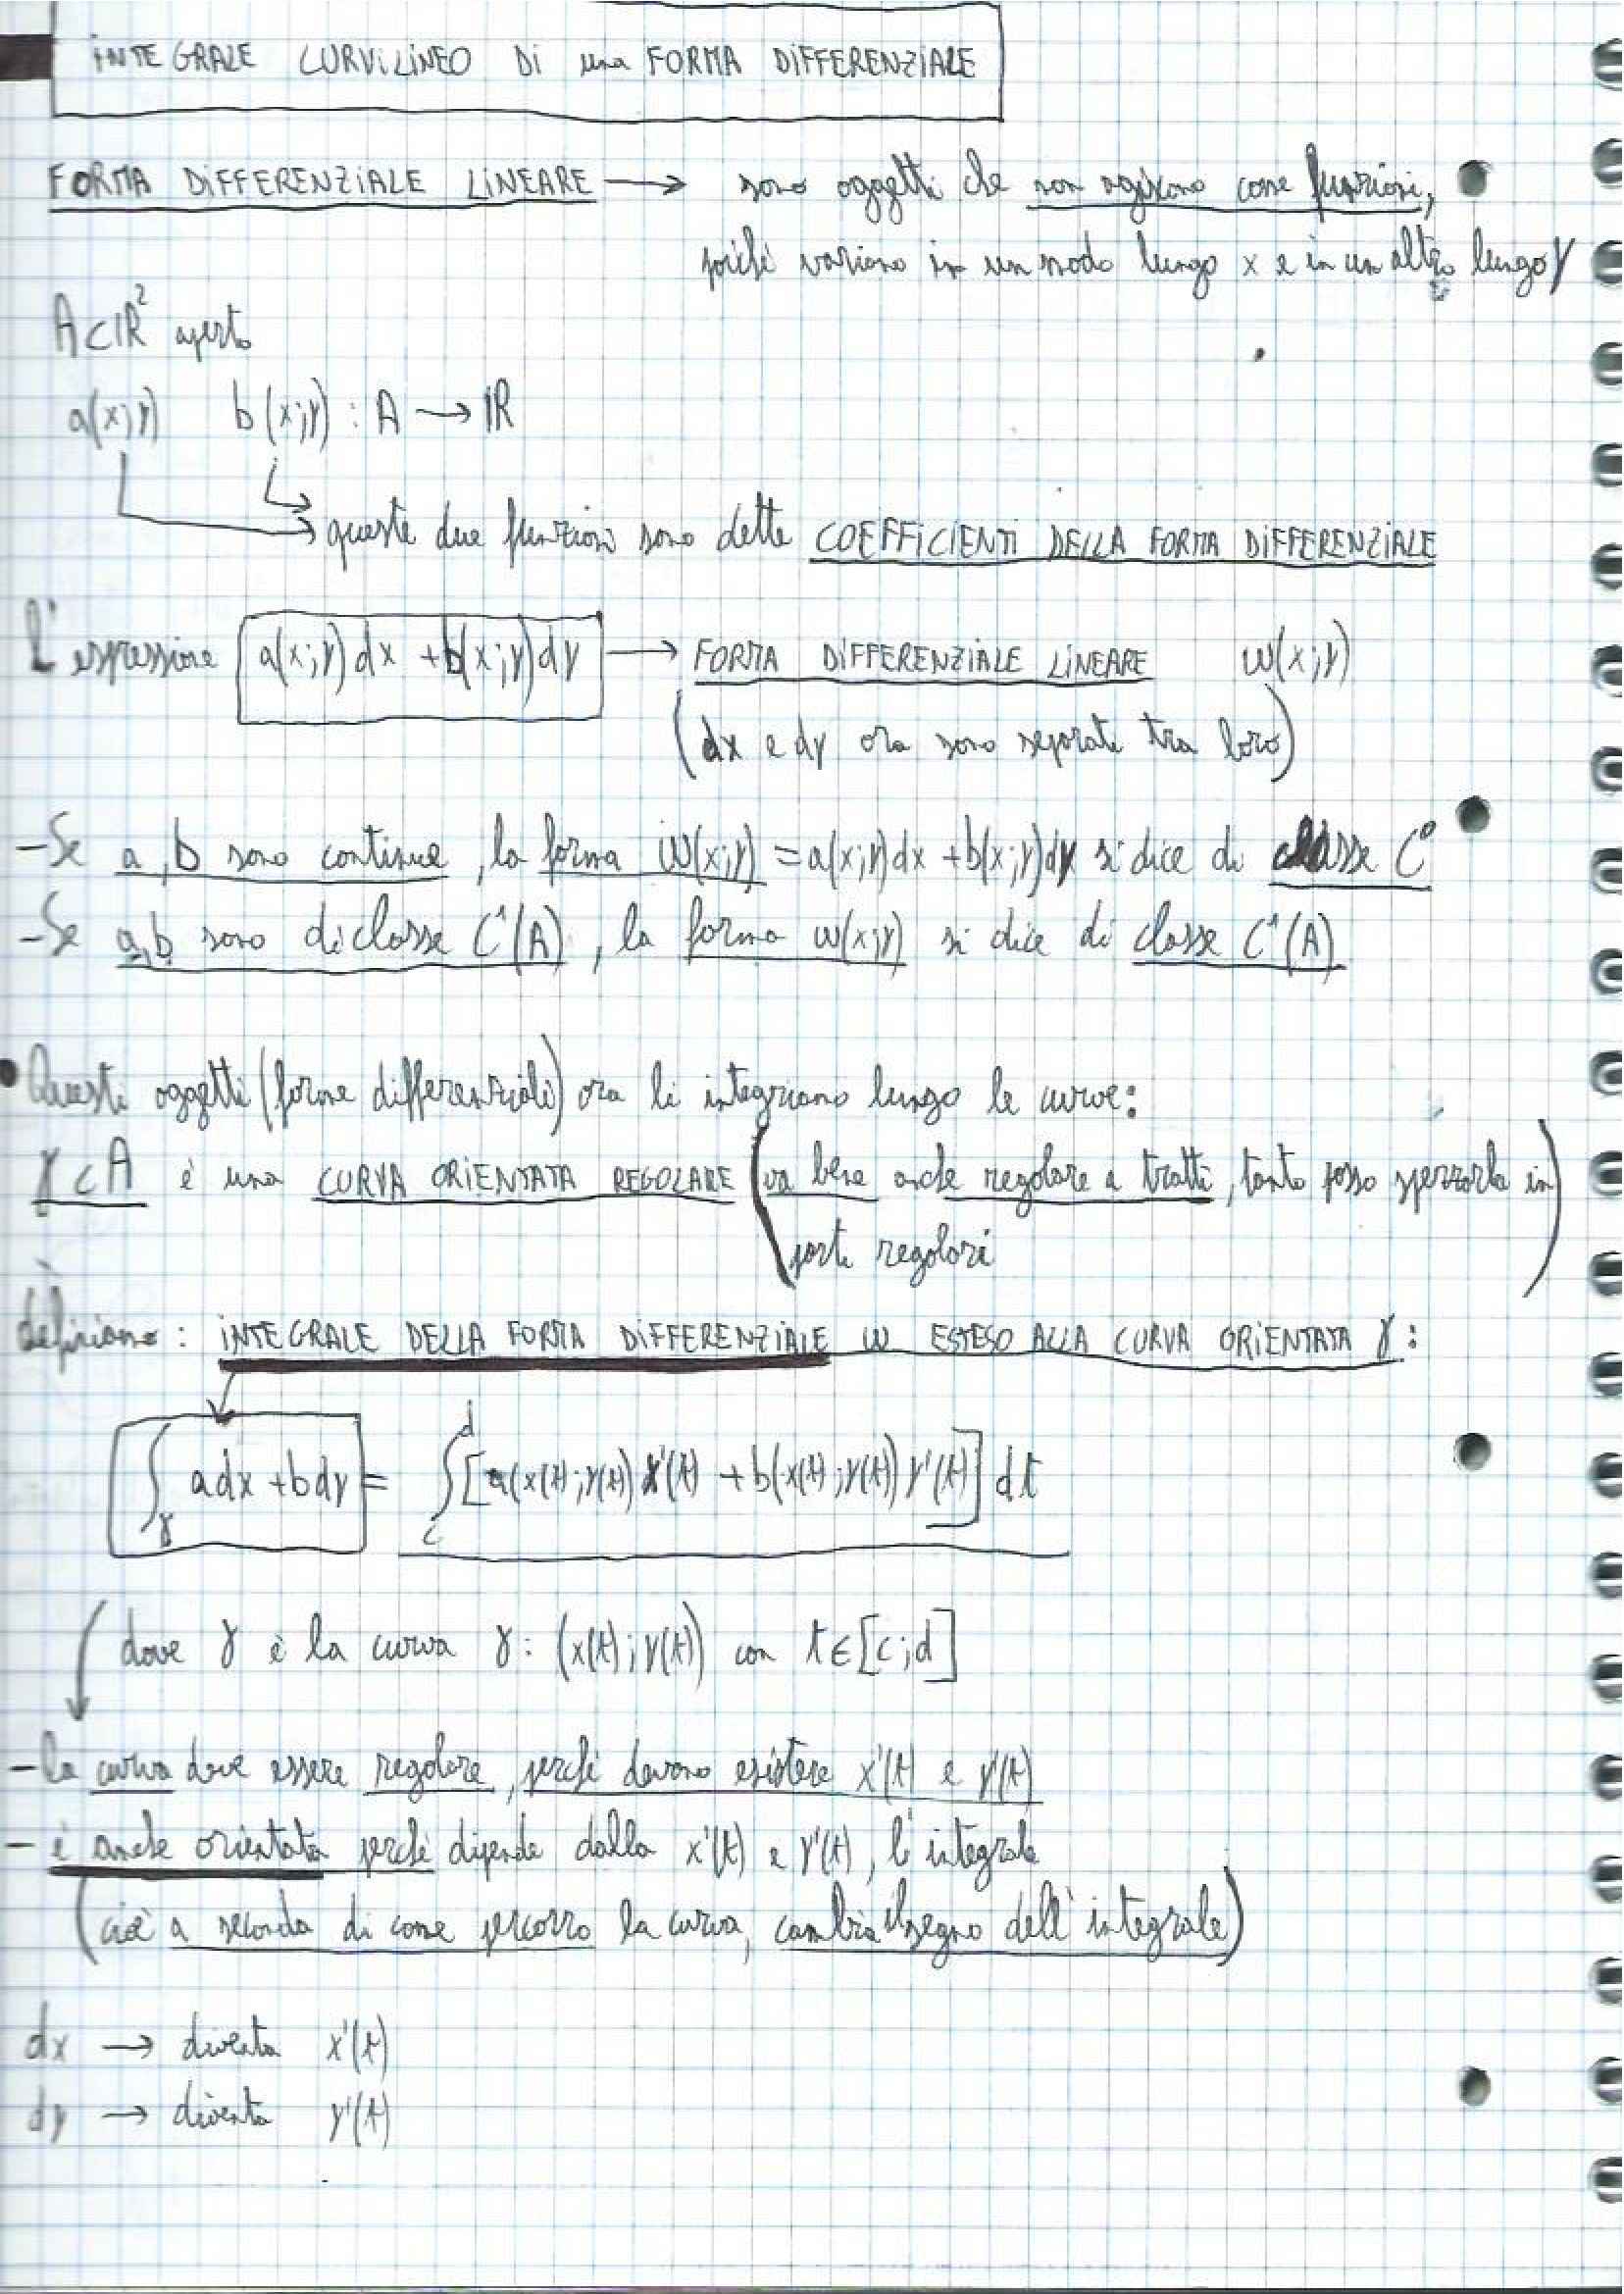 INTEGRALE CURVILINEO DI una FORMA DIFFERENZIALE
FORMA DIFFERENZIALE LINEARE → sono oggetti che non agiscono come funzioni,
poiché variano in un modo lungo x e in un altro lungo y
A⊂ℝ² aperto
a(x;y) b(x;y) : A → ℝ
queste due funzioni sono dette COEFFICIENTI DELLA FORMA DIFFERENZIALE
L'espressione a(x;y)dx + b(x;y)dy → FORMA DIFFERENZIALE LINEARE ω(x;y)
(dx e dy ora sono separate tra loro)
- Se a, b sono continue, la forma ω(x;y) = a(x;y)dx + b(x;y)dy si dice di classe C⁰
- Se a, b sono di classe C¹(A), la forma ω(x;y) si dice di classe C¹(A)
• Questi oggetti (forme differenziali) ora li integriamo lungo le curve:
γ⊂A è una CURVA ORIENTATA REGOLARE (va bene anche regolare a tratti, tanto posso spezzarla in
parti regolari)
definiamo: INTEGRALE DELLA FORMA DIFFERENZIALE ω ESTESO ALLA CURVA ORIENTATA γ:
∫_γ adx + bdy = ∫_c^d [a(x(t);y(t)) x'(t) + b(x(t);y(t)) y'(t)] dt
dove γ è la curva γ: (x(t);y(t)) con t∈[c;d]
- la curva deve essere regolare, perché devono esistere x'(t) e y'(t)
- è anche orientata perché dipende dalla x'(t) e y'(t), l'integrale
(cioè a seconda di come percorro la curva, cambia il segno dell'integrale)
dx → diventa x'(t)
dy → diventa y'(t)